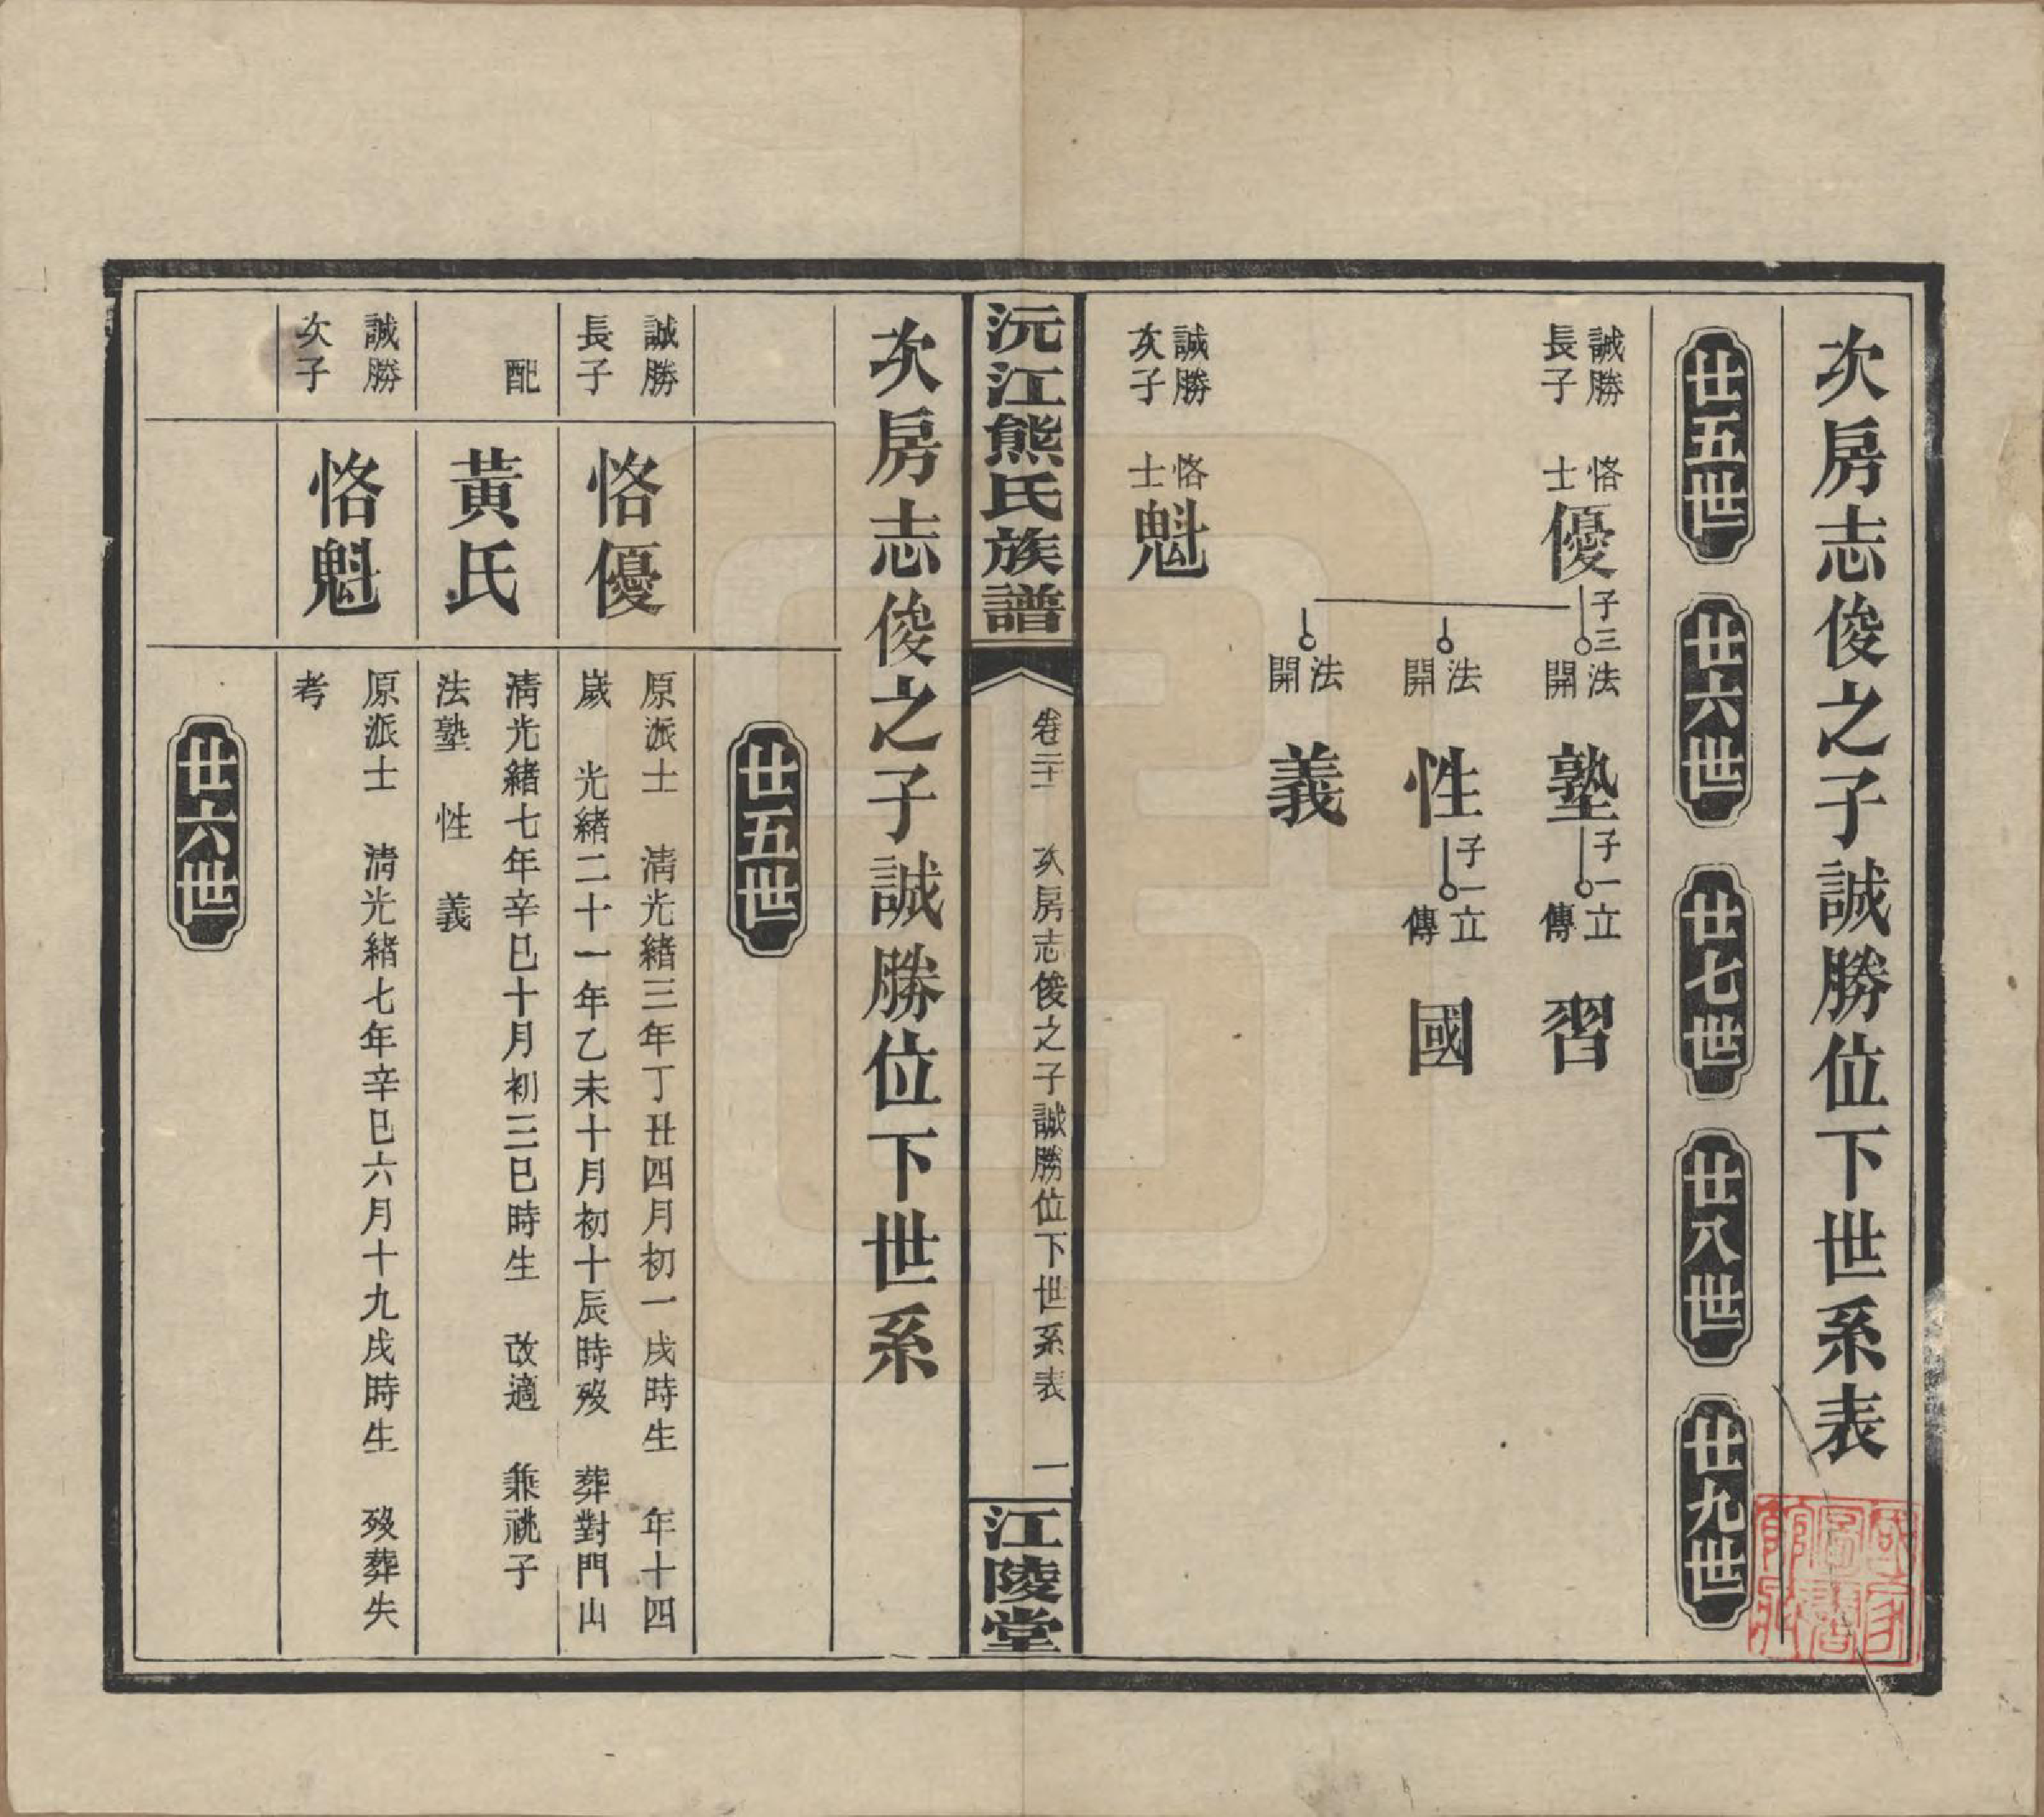 次房志俊之子誠勝位下世系表
廿五世
廿六世
廿七世
廿八世
廿九世
誠勝長子
恪士優
子三
法開塾
子一
立傳習
法開性
子一
立傳國
法開義
誠勝次子
恪士魁
沅江熊氏族譜
卷二十
次房志俊之子誠勝位下世系表
一
江陵堂
次房志俊之子誠勝位下世系
廿五世
誠勝長子
恪優
原派士 淸光緒三年丁丑四月初一戌時生 年十四
嵗 光緒二十一年乙未十月初十辰時歿 葬對門山
配
黃氏
淸光緒七年辛巳十月初三巳時生 改適 兼祧子
法塾 性 義
誠勝次子
恪魁
原派士 淸光緒七年辛巳六月十九戌時生 歿葬失
考
廿六世
國家圖書館藏